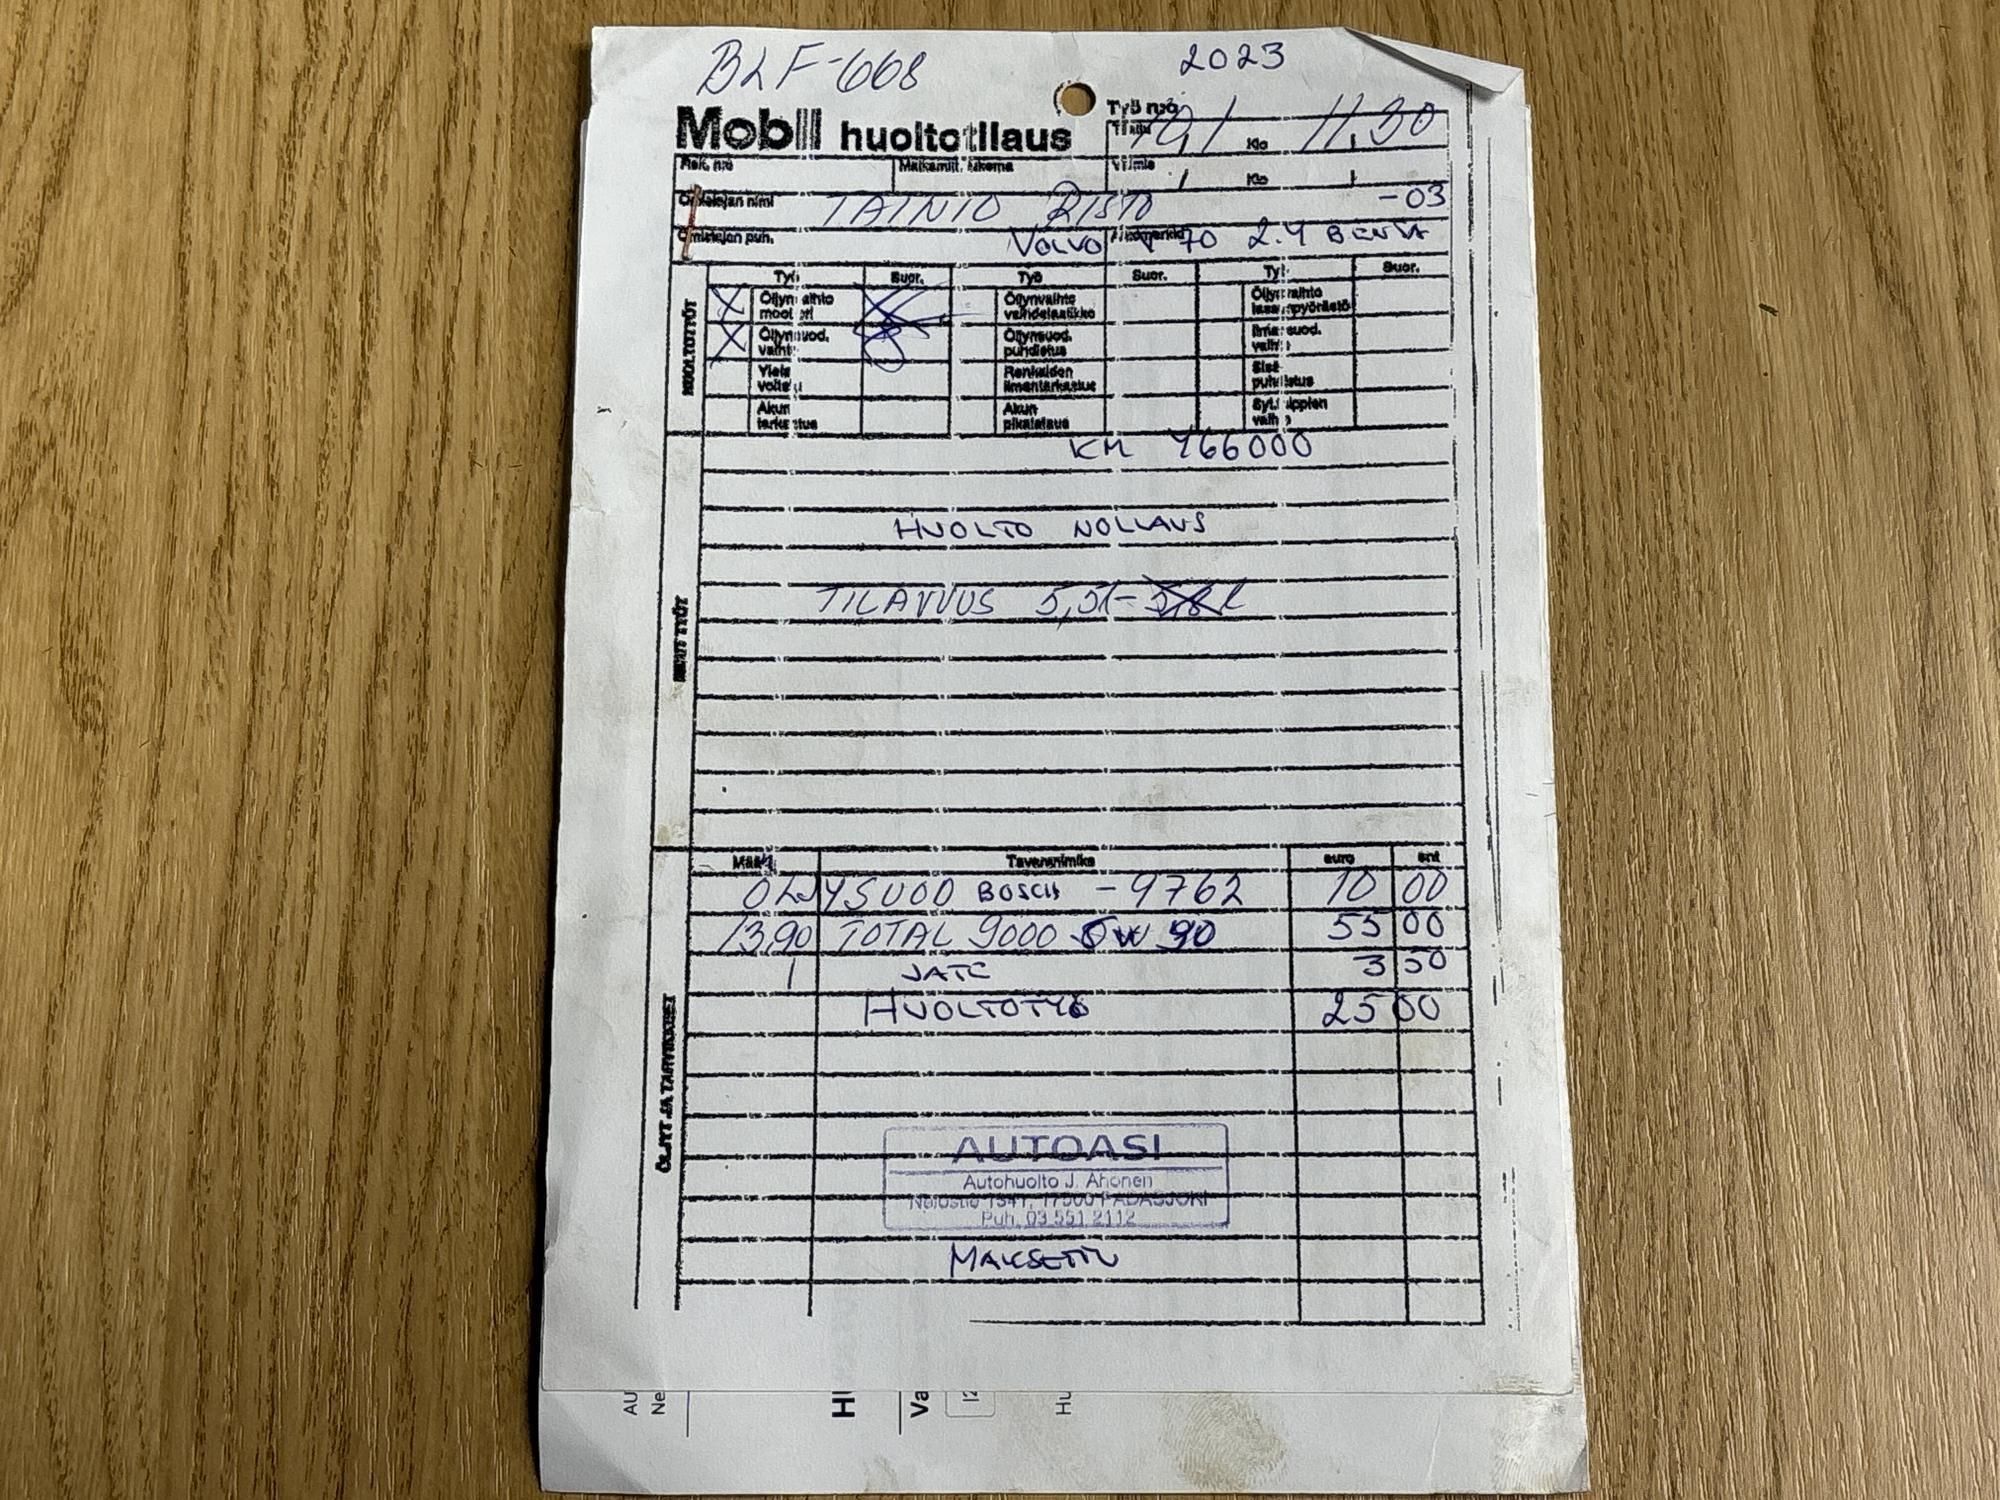 BLF-668 2023
Mobil huoltotilaus
Työ n:o
Tilattu 10/1 Klo 11,30
Rek. n:o Matkamitt. lukema Valmis / Klo
Omistajan nimi TAINIO RISTO -03
Omistajan puh. VOLVO Automerkki V70 2.4 BENSA
HUOLTOTYÖT
Työ Suor. Työ Suor. Työ Suor.
X Öljynvaihto moottori X Öljynvaihto vaihdelaatikko Öljynvaihto tasauspyörästö
X Öljynsuod. vaihto Öljynsuod. puhdistus Ilmansuod. vaihto
Yleisvoitelu Renkaiden ilmantarkastus Sisäpuhdistus
Akun tarkastus Akun pikalataus Syt.tulppien vaihto
MUUT TYÖT
KM 466000
HUOLTO NOLLAUS
TILAVUUS 5,5l - 5,8 l
ÖLJYT JA TARVIKKEET
Määrä Tavaranimike euro snt
ÖLJYSUOD BOSCH - 9762 10 00
TOTAL 9000 5W 55 00
1 JÄTE 3 50
HUOLTOTYÖ 25 00
AUTOASI
Autohuolto J. Ahonen
17500 PADASJOKI
Puh. 03 551 2112
MAKSETTU
AU
Ne
H
Va
Hu